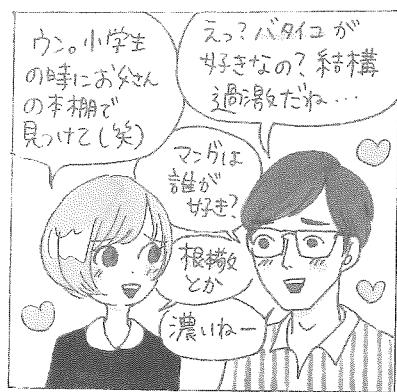 えっ?バタイユが
好きなの?結構
過激だね…
ウン。小学生
の時にお父さん
の本棚で
見つけて(笑)
マンガは
誰が
好き?
根本敬
とか
濃いねー